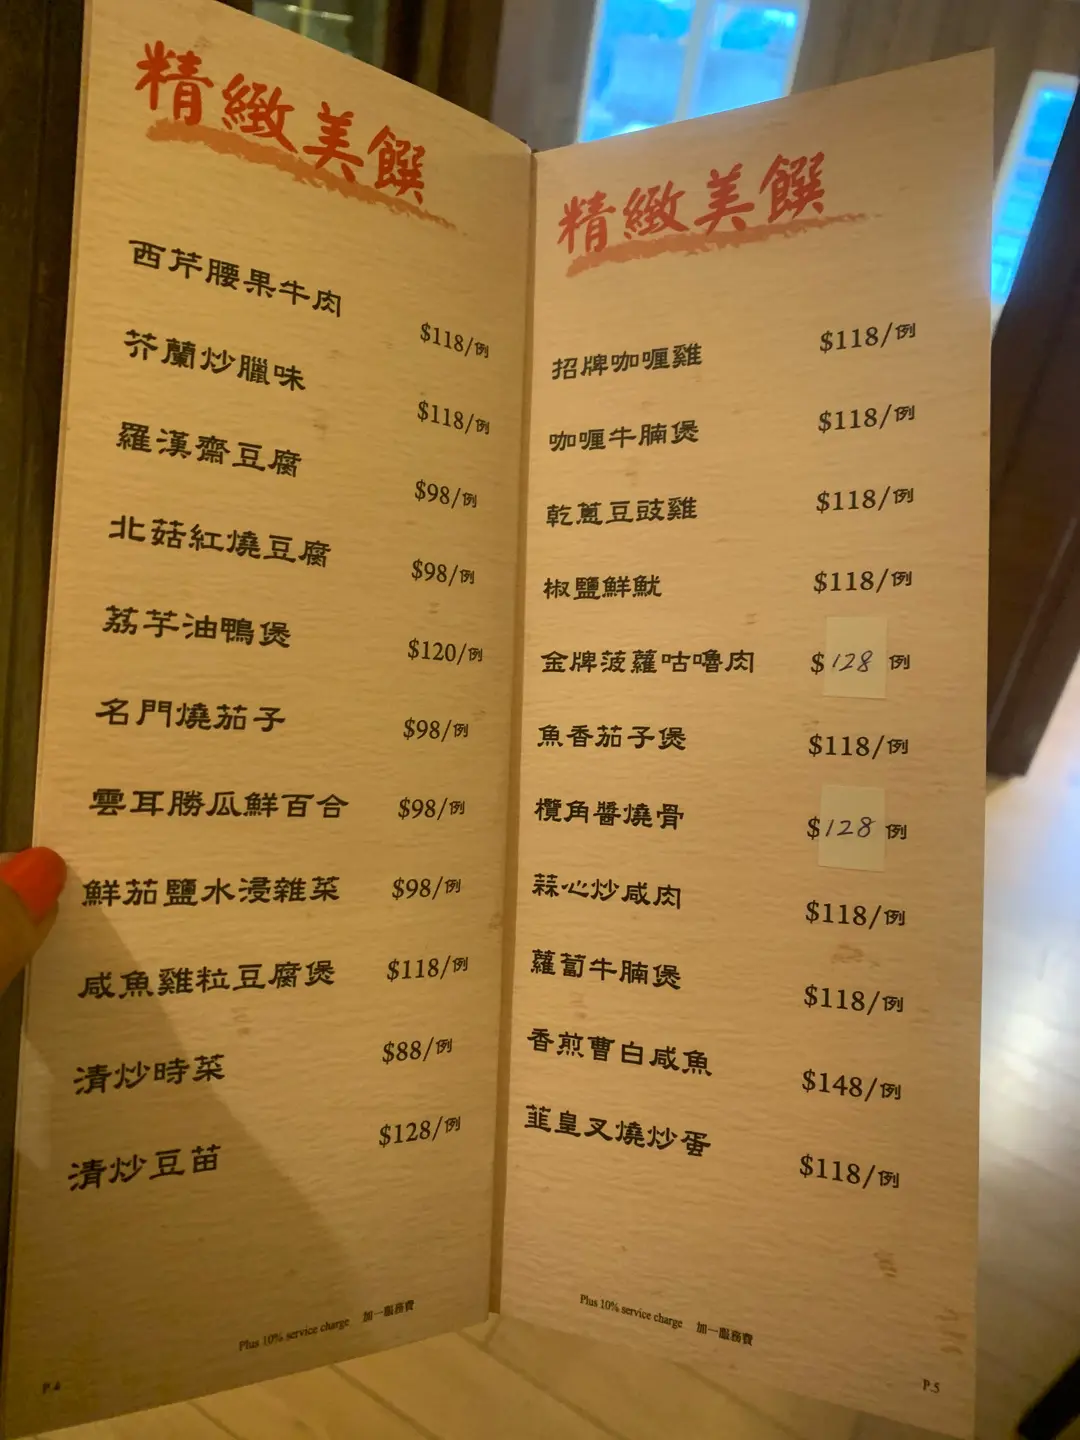 精緻美饌
西芹腰果牛肉 $118/例
芥蘭炒臘味 $118/例
羅漢齋豆腐 $98/例
北菇紅燒豆腐 $98/例
荔芋油鴨煲 $120/例
名門燒茄子 $98/例
雲耳勝瓜鮮百合 $98/例
鮮茄鹽水浸雜菜 $98/例
咸魚雞粒豆腐煲 $118/例
清炒時菜 $88/例
清炒豆苗 $128/例
Plus 10% service charge 加一服務費
P.4
精緻美饌
招牌咖喱雞 $118/例
咖喱牛腩煲 $118/例
乾蔥豆豉雞 $118/例
椒鹽鮮魷 $118/例
金牌菠蘿咕嚕肉 $128 例
魚香茄子煲 $118/例
欖角醬燒骨 $128 例
蒜心炒咸肉 $118/例
蘿蔔牛腩煲 $118/例
香煎曹白咸魚 $148/例
韮皇叉燒炒蛋 $118/例
Plus 10% service charge 加一服務費
P.5